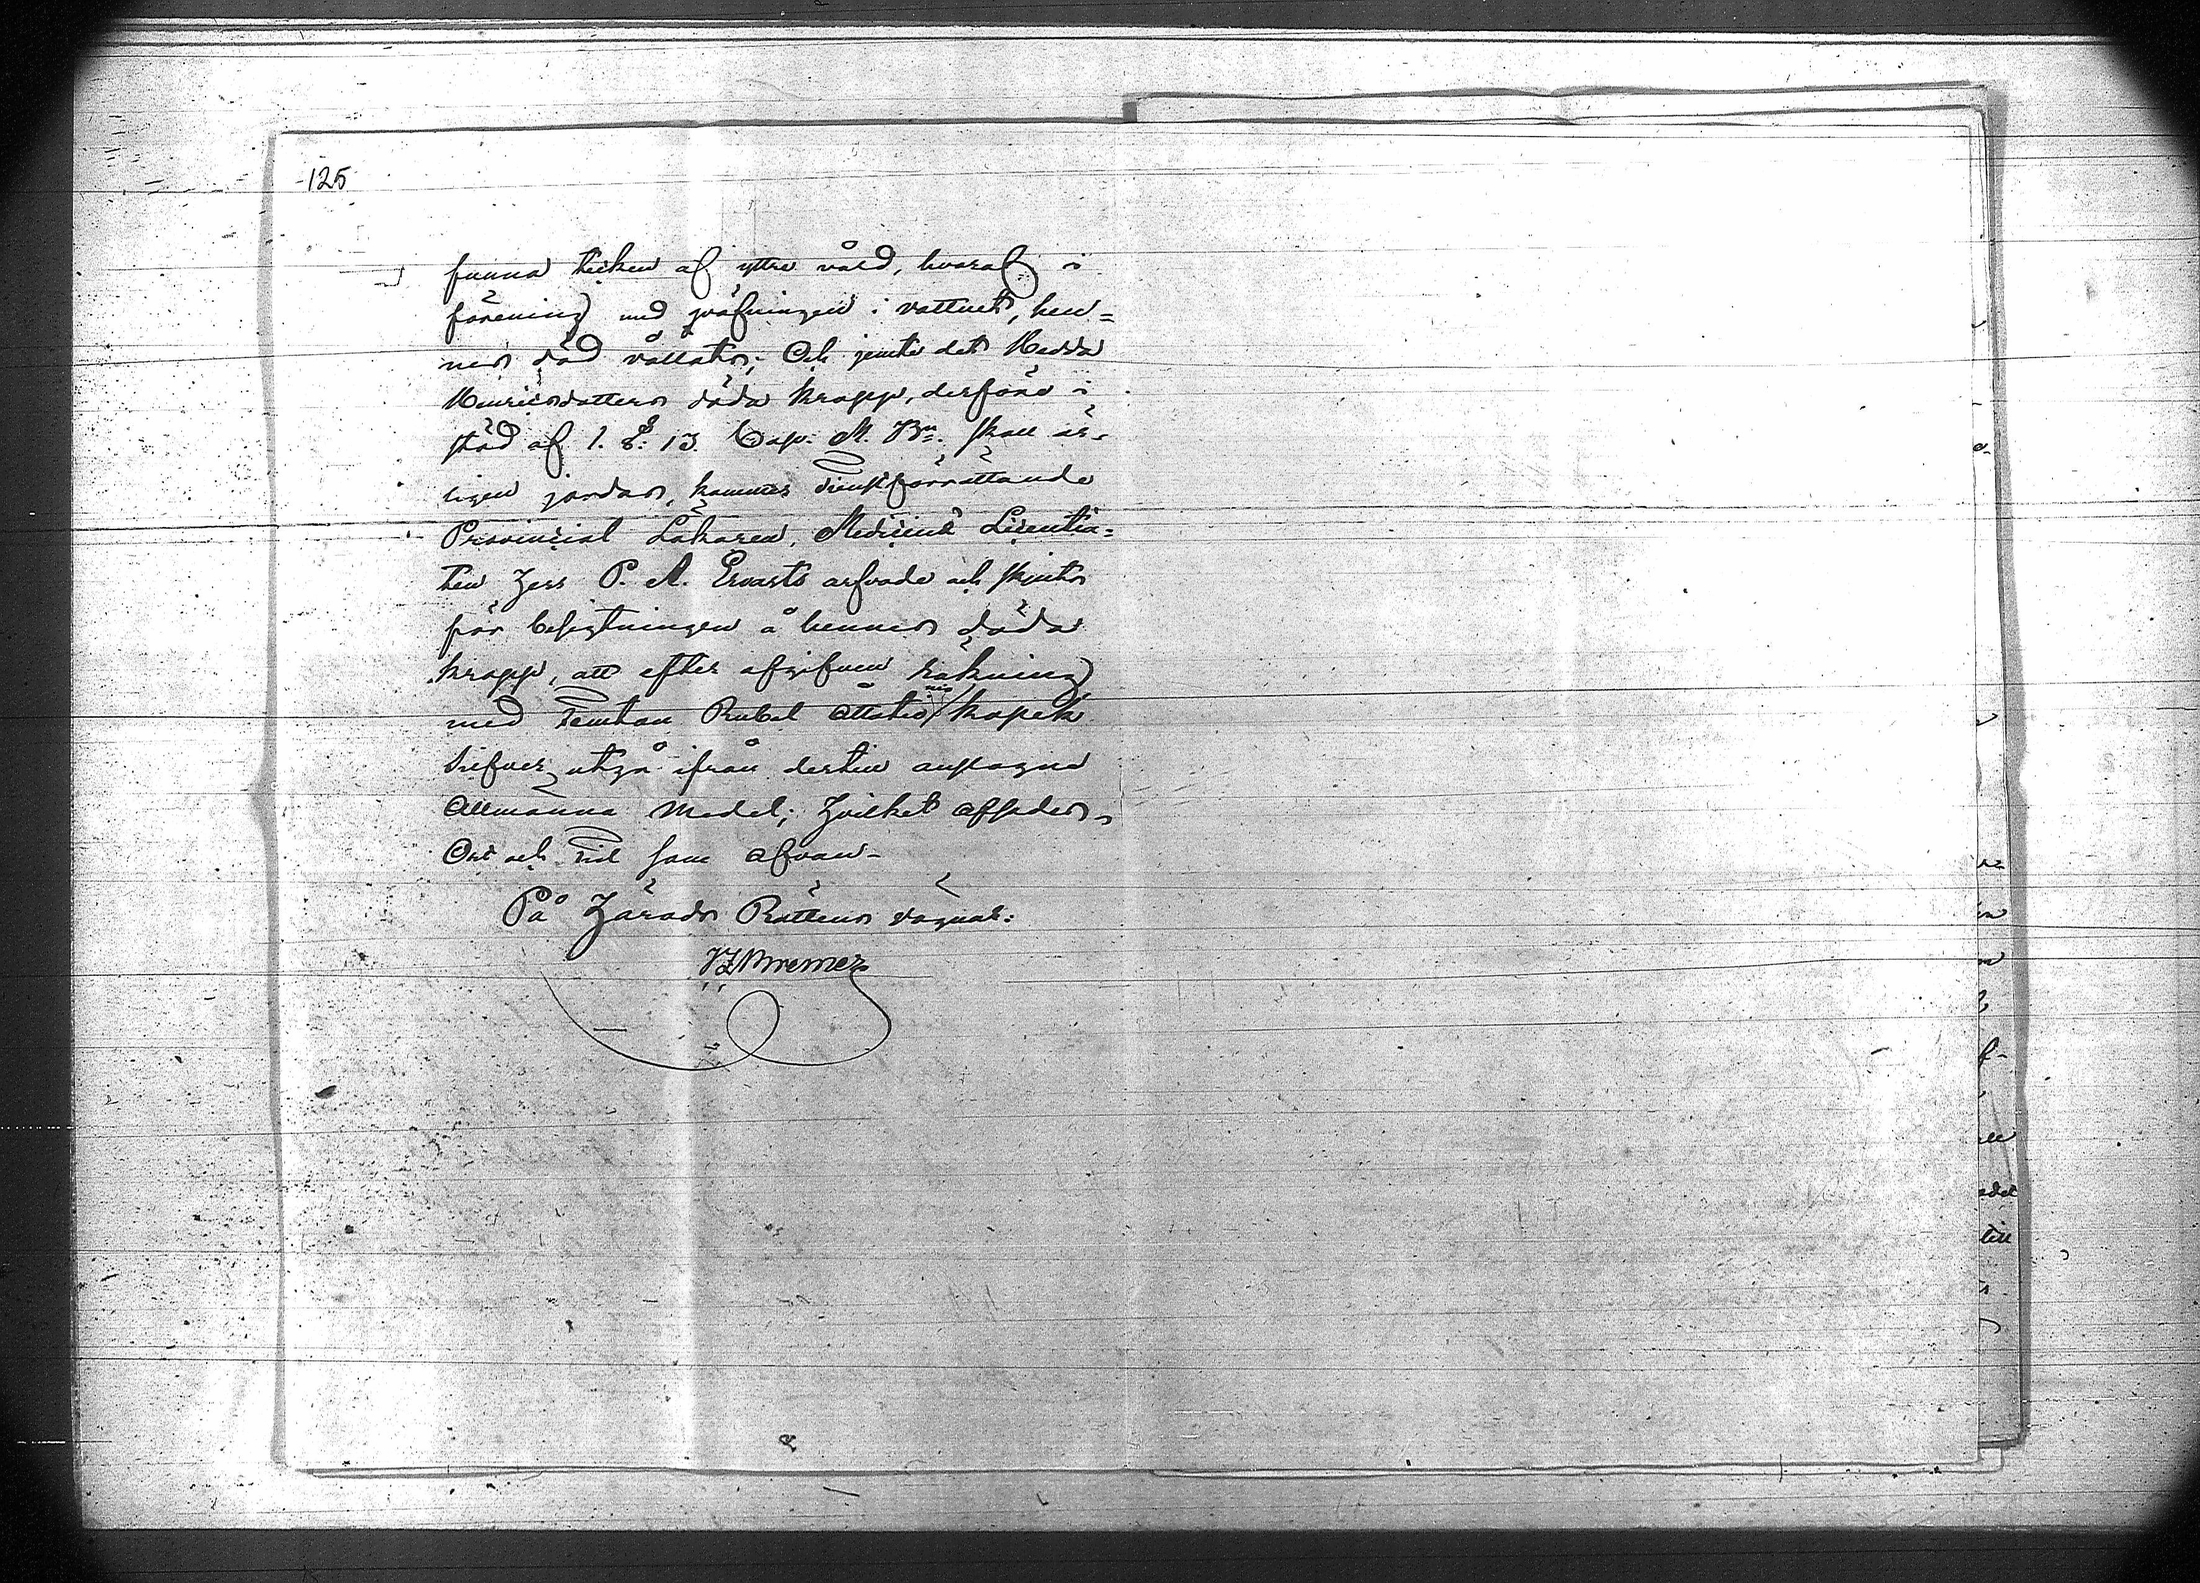 125
funna tecken af yttre våld, hvaraf i
förening med qväfningen i vattnet, hen=
nes död vållats; Och jemte det Hedda
Henricsdotters döda kropp, derföre i
stöd af 1. §. 13. Cap. M. Bn. skall är=
ligen jordas, kommer tienstförrättande
Provincial Läkaren, Medicinæ Licentia=
ten Herr P. A. Ervasts arfvode och skjuts
för besigtningen å hennes döda
kropp, att efter afgifven räkning
med Femton Rubel åttatio kopek
Silfver, utgå ifrån dertill anslagne
Allmänna Medel; Hvilket afsades,
Ort och tid som ofvan.
På Härads Rättens vägnar:
Bremer